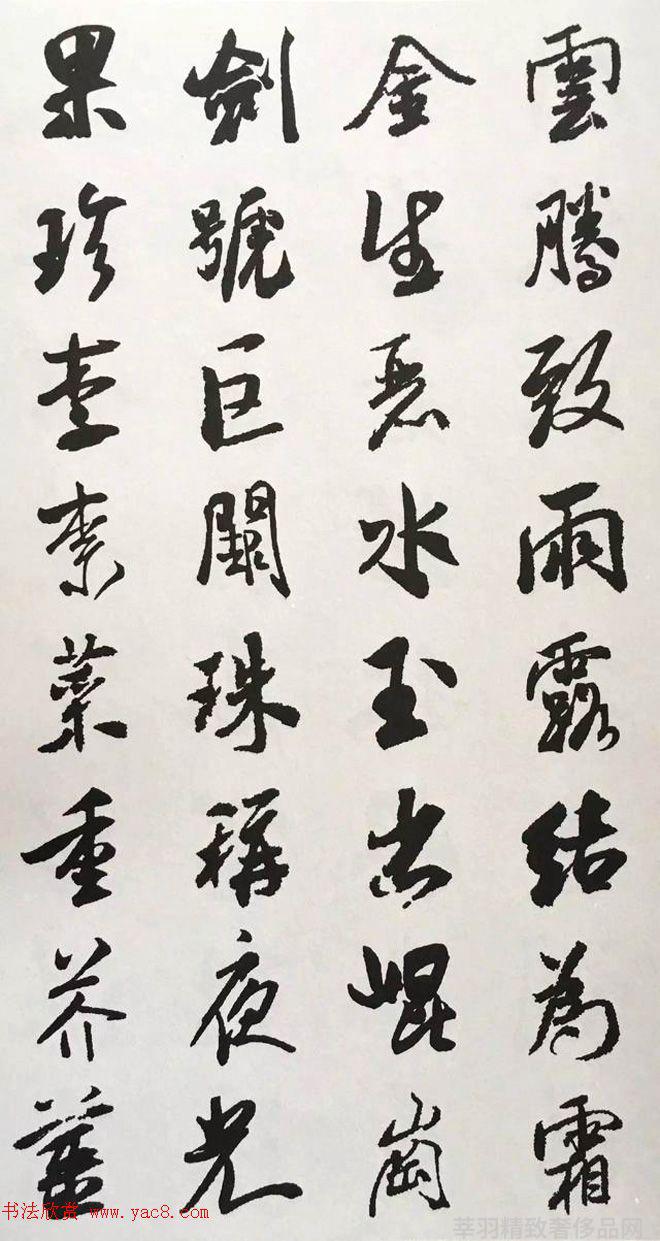 雲騰致雨露結為霜
金生麗水玉出崐崗
劍號巨闕珠稱夜光
果珍李柰菜重芥薑
书法欣赏 www.yac8.com
莘羽精致奢侈品网